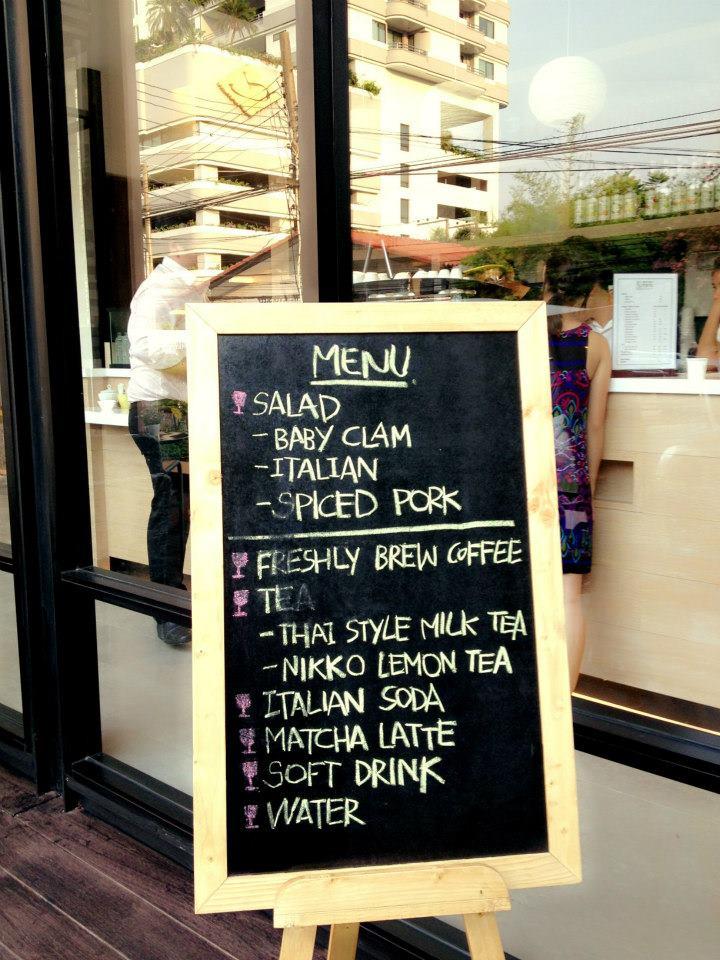 MENU
SALAD
- BABY CLAM
- ITALIAN
- SPICED PORK
FRESHLY BREW COFFEE
TEA
- THAI STYLE MILK TEA
- NIKKO LEMON TEA
ITALIAN SODA
MATCHA LATTE
SOFT DRINK
WATER